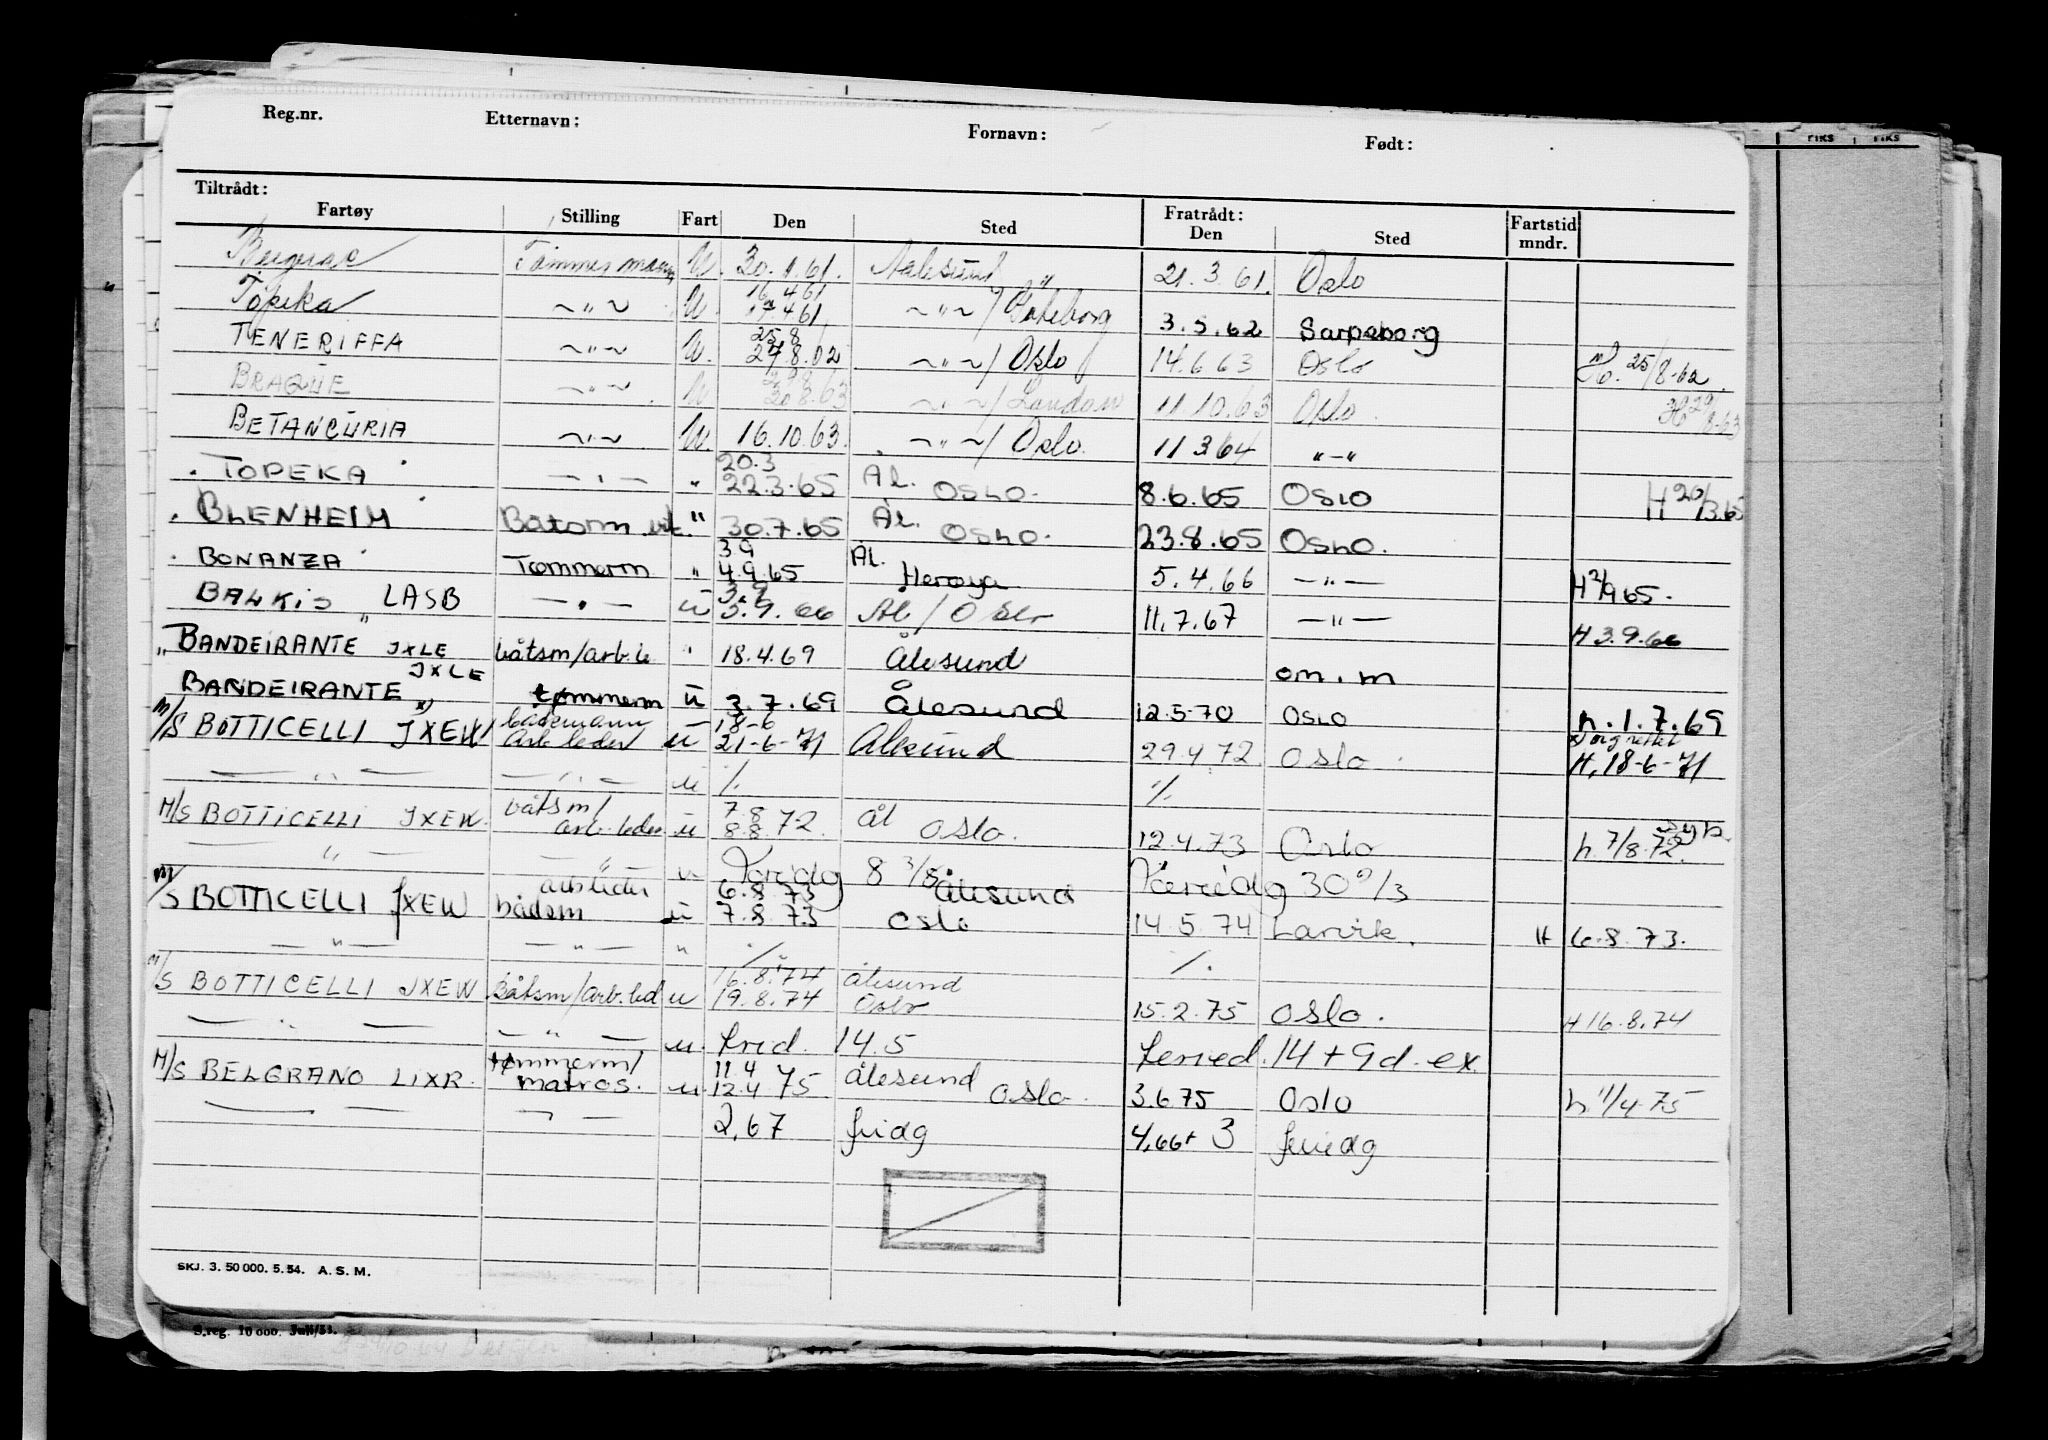 Reg.nr. Etternavn: Fornavn: Født:
Tiltrådt: Fratrådt:
Fartøy Stilling Fart Den Sted Den Sted Fartstid mndr.
Tømmermann U. 30.1.61. Aalesund 21.3.61. Oslo
Topeka ~"~ U 16.4.61 17.4.61 ~"~/Gøteborg 3.5.62 Sarpsborg
TENERIFFA ~"~ U. 25.8 27.8.62 ~"~/Oslo 14.6.63 Oslo H. 25/8-62.
BRAQUE ~"~ U 8.63 ~"~/London 11.10.63 Oslo. H 29/8-63
BETANCURIA ~"~ U. 16.10.63. ~"~/Oslo. 11.3.64 "-"
TOPEKA -"- " 20.3 22.3.65 Ål. OSLO. 8.6.65 OSLO H 20/3.65
BLENHEIM Båtsm. " 30.7.65 Ål. OSLO. 23.8.65 OSLO.
BONANZA Tømmerm " 3.9 4.9.65 Ål. Herøya 5.4.66 -"- H 2/9 65.
BALKIS LASB -"- u 3.9 5.9.66 Ål/Oslo 11.7.67 -"- H 3.9.66
" BANDEIRANTE JXLE båtsm/arb.le " 18.4.69 Ålesund om.m
BANDEIRANTE JXLE x) tømmerm u 3.7.69 Ålesund 12.5-70 Oslo h.1.7.69
M/S BOTTICELLI JXEW båtsmann arb leder u 18-6 21-6-71 Ålesund 29.4.72 Oslo H. 18-6-71
-"- -"- u % %
M/S BOTTICELLI JXEW. båtsm/ arb.leder u 7.8 8.8 72. ål oslo. 12.4.73 Oslo h. 7/8.72.
-"- -"- u 8 3/5 Feriedg 30 0/3
M/S BOTTICELLI JXEW arbleder båtsm u 6.8.73 7.8.73 Ålesund oslo 14.5.74 Larvik. H 6.8.73.
-"- -"- " % %
M/S BOTTICELLI JXEW båtsm/arb.led u 16.8.74 19.8.74 ålesund Oslo 15.2.75 oslo. H 16.8.74
-"- -"- u. frid. 14.5 feried. 14 + 9 d. ex
M/S BELGRANO LIXR. tømmerm/ matros. u. 11.4 12.4 75 ålesund oslo. 3.6.75 Oslo h. 11/4-75
-"- -"- 2,67 fridg 4,66 + 3 feriedg
SKJ. 3. 50 000. 5.54. A. S. M.
S.reg. 10 000. Juli/51.